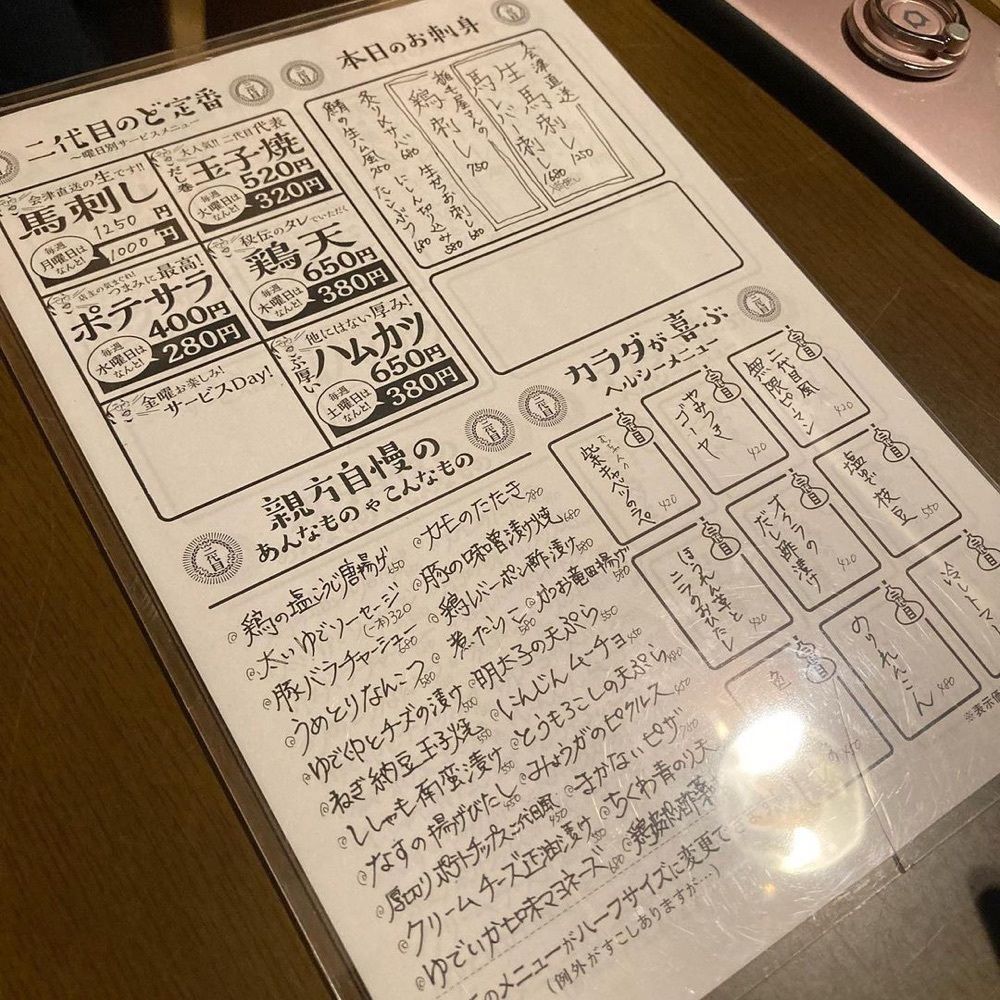 二代目のど定番
～曜日別サービスメニュー～
会津直送の生です!!
馬刺し
1250円
毎週月曜日はなんと!
1000円
大人気!! 二代目代表
だし巻
玉子焼
520円
毎週火曜日はなんと!
320円
店主の気まぐれ!
つまみに最高!
ポテサラ
400円
毎週水曜日はなんと!
280円
秘伝のタレでいただく
鶏天
650円
毎週木曜日はなんと!
380円
金曜お楽しみ!
サービスDay!
他にはない厚み!
ぶ厚い
ハムカツ
650円
毎週土曜日はなんと!
380円
本日のお刺身
会津直送
生馬刺し 1250
馬レバー刺し 1680
鶏刺し 750
炙り〆サバ 680
生だこお刺し 680
鯖の生ハム風 750
にしん切り込み 580
たこぶつ 680
カラダが喜ぶ
ヘルシーメニュー
二代目風
無限ピーマン
420
やみつき
ゴーヤ
420
紫キャベツのスペ
420
塩ゆで枝豆
550
オクラの
だし酢漬け
420
ほうれん草と
ニラのおひたし
420
冷しトマト
のりれんこん
480
親方自慢の
あんなものやこんなもの
鶏の塩こうじ唐揚げ 650
太いゆでソーセージ (一本)320
豚バラチャーシュー 680
うめとりなんこつ 580
ゆで砂肝とチーズの漬け 500
ねぎ納豆玉子焼 550
ししゃも南蛮漬け 550
なすの揚げびたし 550
厚切りポテトチップス二代目風 450
クリームチーズ正油漬け 550
ゆでいか七味マヨネーズ 680
カモのたたき 780
豚の味噌漬け焼 680
鶏レバーポン酢漬け 580
煮たらこ 580
かつお竜田揚げ 580
明太子の天ぷら 550
にんじんムーチョ 450
とうもろこしの天ぷら 480
みょうがのピクルス 450
まかないピザ 780
ちくわ青のり天
のメニューがハーフサイズに変更でき
(例外がすこしありますが…)
※表示価